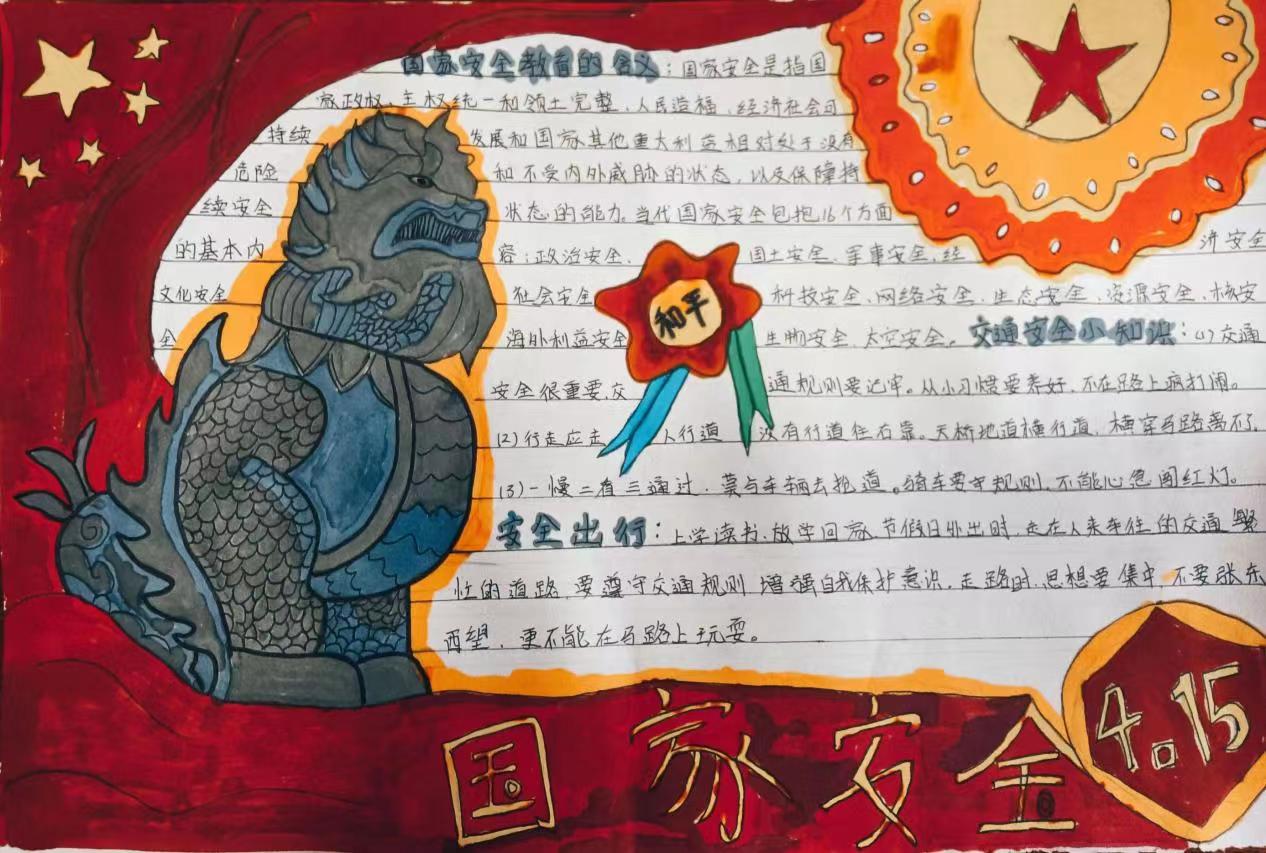 国家安全教育的含义：国家安全是指国
家政权、主权统一和领土完整、人民造福、经济社会可
持续 发展和国家其他重大利益相对处于没有
危险 和不受内外威胁的状态，以及保障持
续安全 状态的能力。当代国家安全包抱16个方面
的基本内 容：政治安全、国土安全、军事安全、经 济安全
文化安全 社会安全 科技安全、网络安全、生态安全、资源安全、核安
全 海外利益安全 生物安全、太空安全。交通安全小知识：(1)交通
和平
安全很重要，交 通规则要记牢。从小习惯要养好，不在路上疯打闹。
(2)行走应走 人行道 没有行道往右靠。天桥地道横行道，横穿马路离不了
(3)一慢二看三通过，莫与车辆去抢道。骑车要守规则，不能心急闯红灯。
安全出行：上学读书、放学回家、节假日外出时，走在人来车往的交通繁
忙的道路，要遵守交通规则，增强自我保护意识，走路时，思想要集中，不要张东
西望，更不能在马路上玩耍。
国家安全
4.15